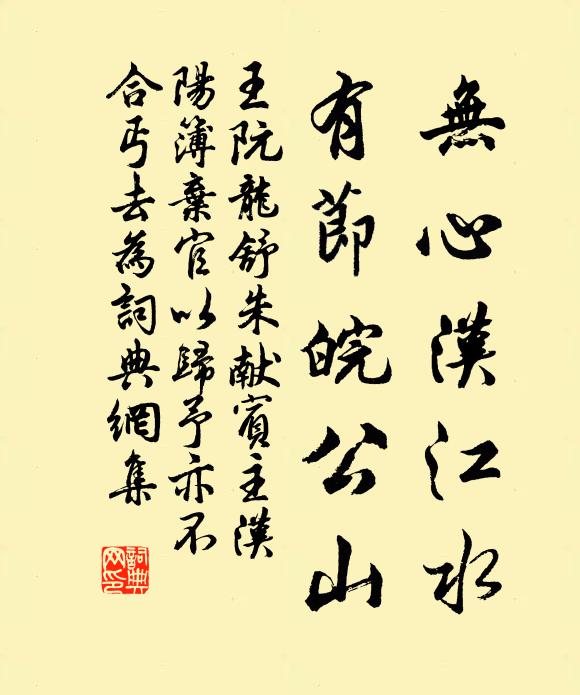 無心漢江水
有節皖公山
王阮龍舒朱献賓主漢
陽簿棄官以歸予亦不
合丐去為詞典網集
詞典
网印